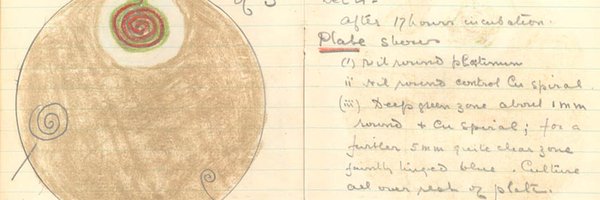 of 3
Dec 21.
After 17 hours incubation.
Plate shows
(i) Nil round platinum
ii Nil round control Cu spiral.
(iii) Deep green zone about 1mm
round + Cu spiral; for a
further 5mm quite clear zone
faintly tinged blue. Culture
all over rest of plate.